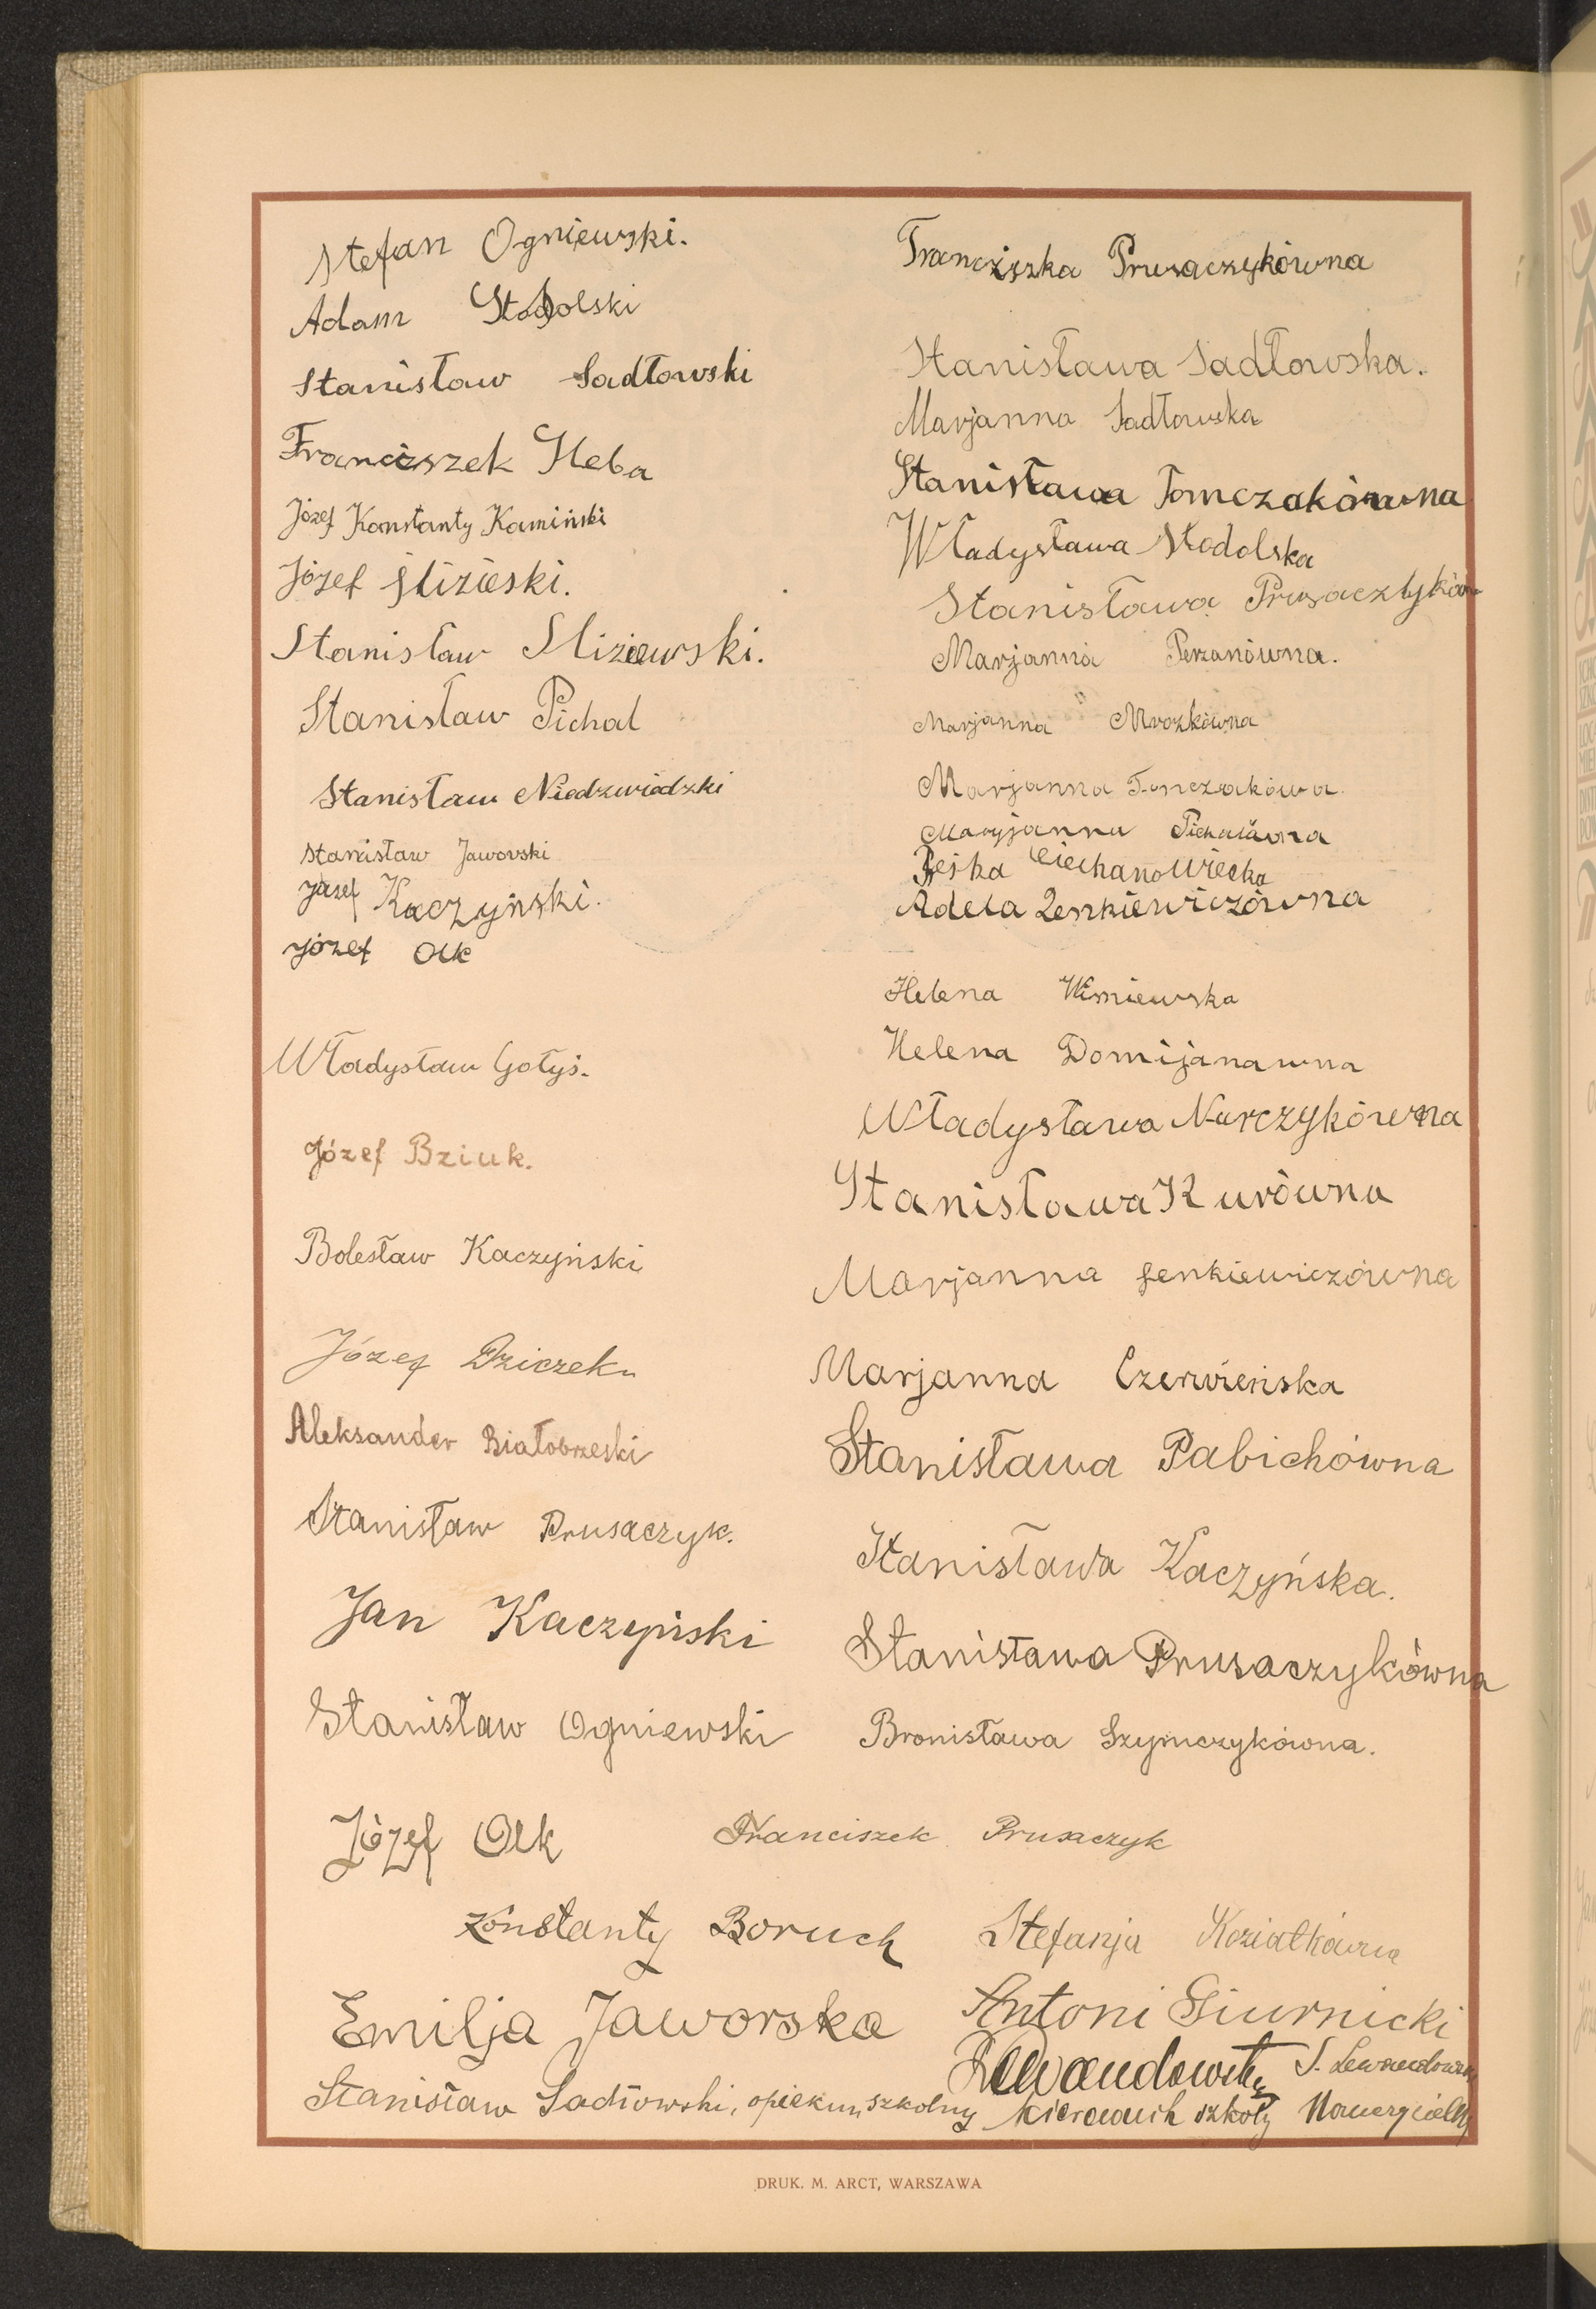 Stefan Ogniewski.
Adam Stodolski
Stanisław Sadłowski
Franciszek Heba
Józef Konstanty Kamiński
Józef Ślizieski.
Stanisław Sliziewski.
Stanisław Pichal
Stanisław Niedzwiedzki
Stanisław Jaworski
Józef Kaczyński.
Józef Olk
Władysław Gołyś.
Józef Bziuk.
Bolesław Kaczyński
Józef Dziczek
Aleksander Białobrzeski
Stanisław Prusaczyk.
Jan Kaczyński
Stanisław Ogniewski
Józef Olk
Franciszka Prusaczykówna
Stanisława Sadłowska.
Marjanna Sadłowska
Stanisława Tomczakówna
Władysława Stodolska
Stanisława
Marjanna Perzanówna.
Marjanna Mrozkówna
Marjanna Tomczakówa
Maryjanna Pichalówna
Ciechanowiecka
Adela Zenkiewiczówna
Helena Wisniewska
Helena Domijanawna
Władysława Nurczykówna
Stanisława Kurówna
Marjanna Żenkiewiczówna
Marjanna Czerwieńska
Stanisława Pabichówna
Stanisława Kaczyńska.
Stanisława Prusaczykówna
Bronisława Szymczykówna.
Franciszek Prusaczyk
Konstanty Boruch
Stefanja Koziatkówna
Emilja Jaworska
Antoni Siurnicki
Lewandowski
S. Lewandowska
Stanisław Sadłowski, opiekun szkolny
kierownik szkoły
Nauczycielka
DRUK. M. ARCT, WARSZAWA